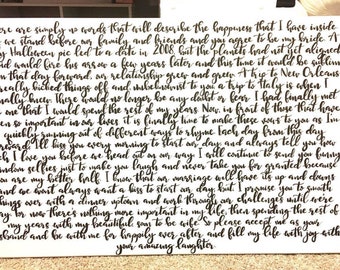 ere are simply no words that will describe the happiness that I have inside
we stand before our family and friends and you agree to be my bride. A
y Halloween pic led to a date in 2008, but the planets had not yet aligned
id would fire his arrow a few years later and this time it would be sublime
om that day forward, our relationship grew and grew. A trip to New Orleans
really kicked things off and unbeknownst to you a trip to Italy is when I
nally knew. There would no longer be any doubt or fear. I had finally met
one that I would spend the rest of my years. Now, in front of those that have
en so important in our lives it is finally time to make these vows to you as Im
quickly running out of different ways to rhyme. Each day from this day
rward, Ill kiss you every morning to start our day, and always tell you how
ch I love you before we head out on our way. I will continue to send you funny
ndom selfies just to make you laugh and never take you for granted because
ou are my better half. I know that our marriage will have its up and downs
and we wont always want a kiss to start our day, but I promise you to smooth
ings over with a dinner uptown and work through our challenges until were
ay. for now theres nothing more important in my life, then spending the rest of
my years with my beautiful son to be wife. So please accept me as your
sband and be with me for happily ever after and fill my life with joy with
your amazing laughter.